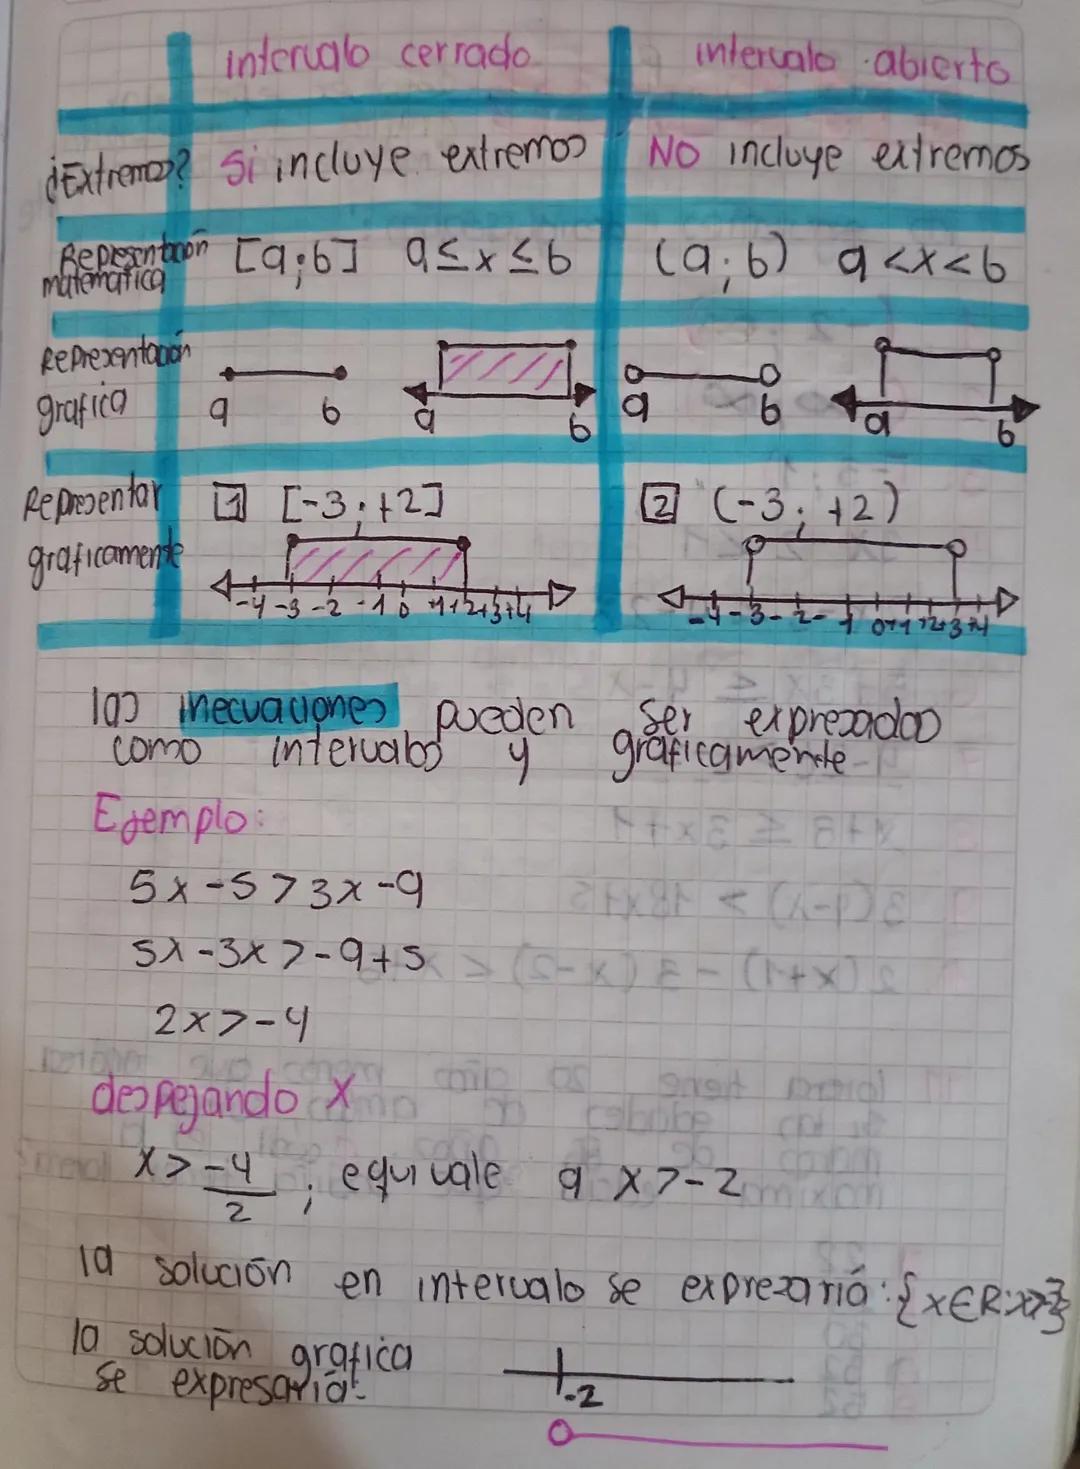 intervalo cerrado intervalo abierto
¿Extremos? Si incluye extremos NO incluye extremos
Representación matemática [a;b] a≤x≤b (a;b) a<x<b
Representación grafica a b a b a b a b
Representar graficamente 1 [-3;+2] 2 (-3;+2)
-4 -3 -2 -1 0 +1 +2 +3 +4 -4 -3 -2 -1 0 +1 +2 +3 +4
las inecuaciones pueden ser expresadas
como intervalos y gráficamente
Ejemplo:
5x-5>3x-9
5x-3x>-9+5
2x>-4
despejando x
x>-4/2; equivale a x>-2
la solución en intervalo se expresaría:
la solución grafica
se expresaría:
-2